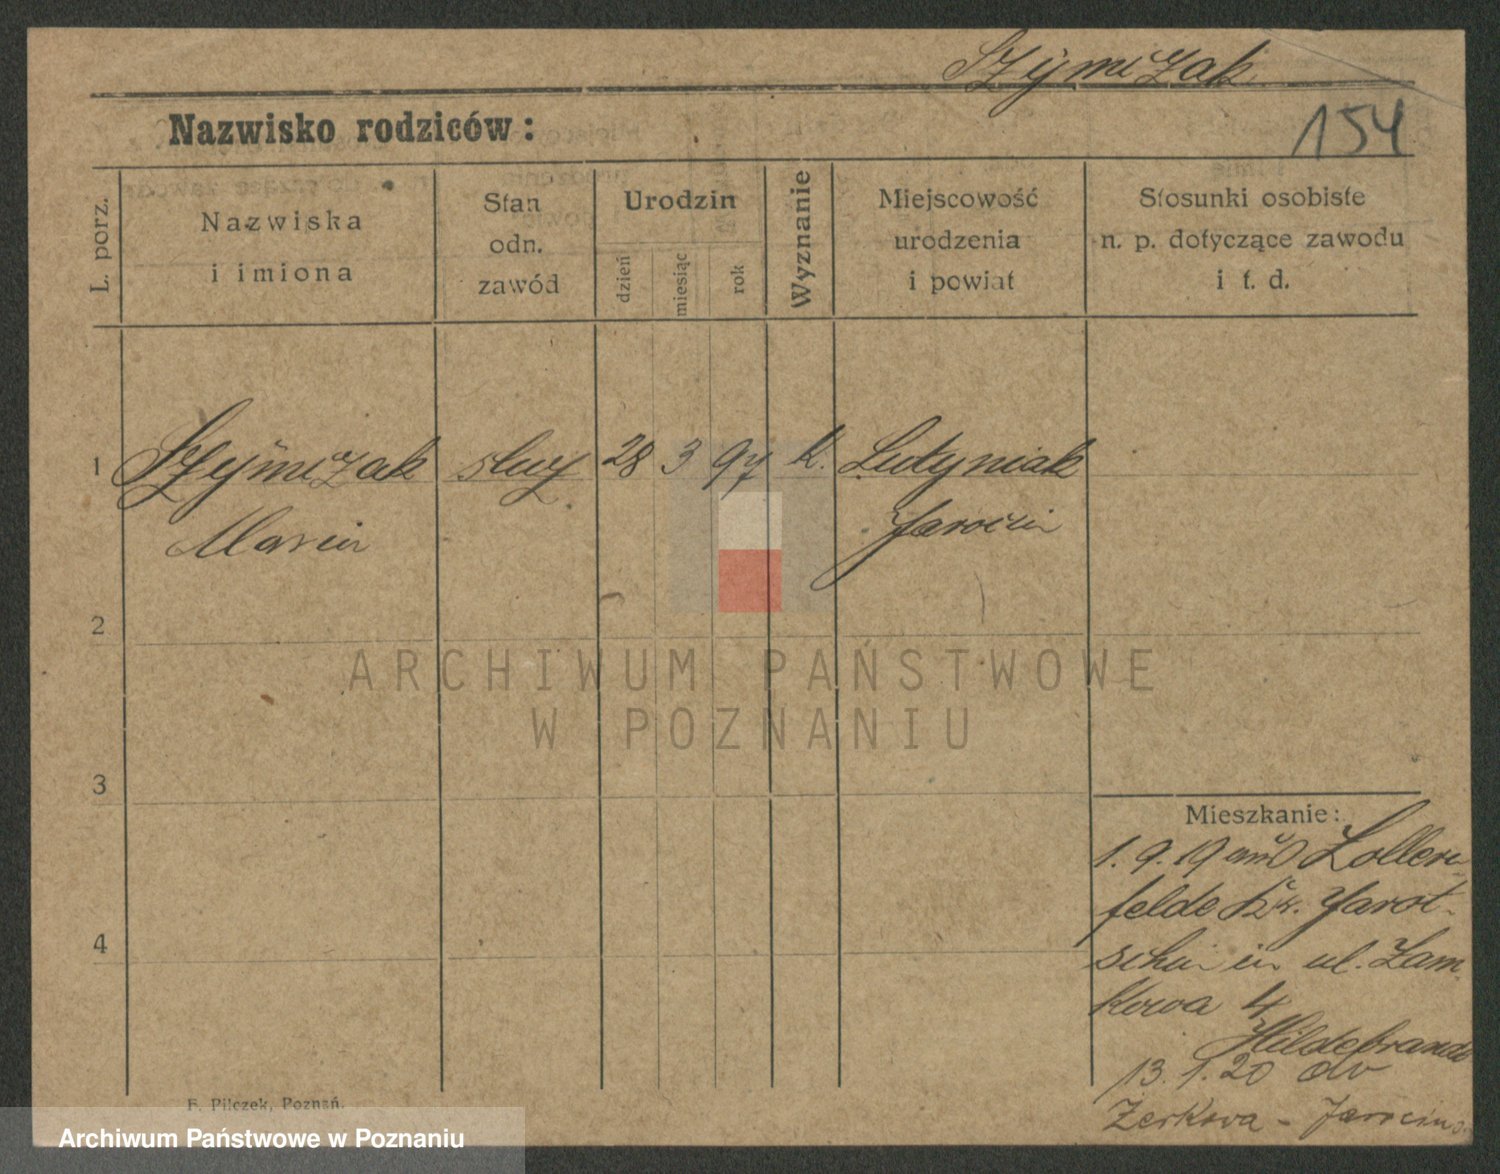 Szymczak
154
Nazwisko rodziców:
L. porz.
Nazwiska
i imiona
Stan
odn.
zawód
Urodzin
dzień
miesiąc
rok
Wyznanie
Miejscowość
urodzenia
i powiat
Stosunki osobiste
n. p. dotyczące zawodu
i t. d.
1 Szymczak służ 28 3 97 k. Lutyniak
Jarocin
2
ARCHIWUM PAŃSTWOWE
W POZNANIU
3
Mieszkanie:
1.9.19 Zollern-
felde Kr. Jarot-
schin in ul. Zam-
kowa 4
4
Hildebrand
13.1.20
Żerkowa - Jarocin
F. Pilczek, Poznań.
Archiwum Państwowe w Poznaniu